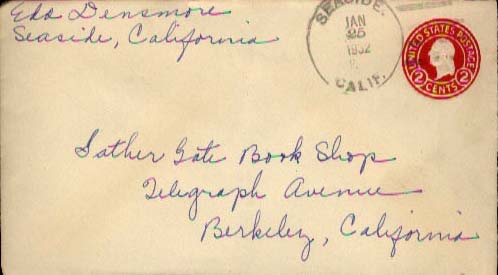 Eda Densmore
Seaside, California
SEASIDE.
JAN
25
1932
CALIF.
UNITED STATES POSTAGE
2 CENTS 2
Sather Gate Book Shop
Telegraph Avenue
Berkeley, California